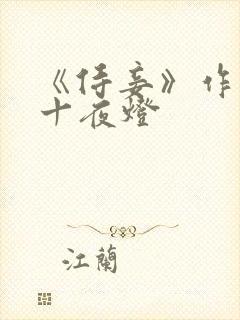 《侍妾》作
十夜燈
江蘭